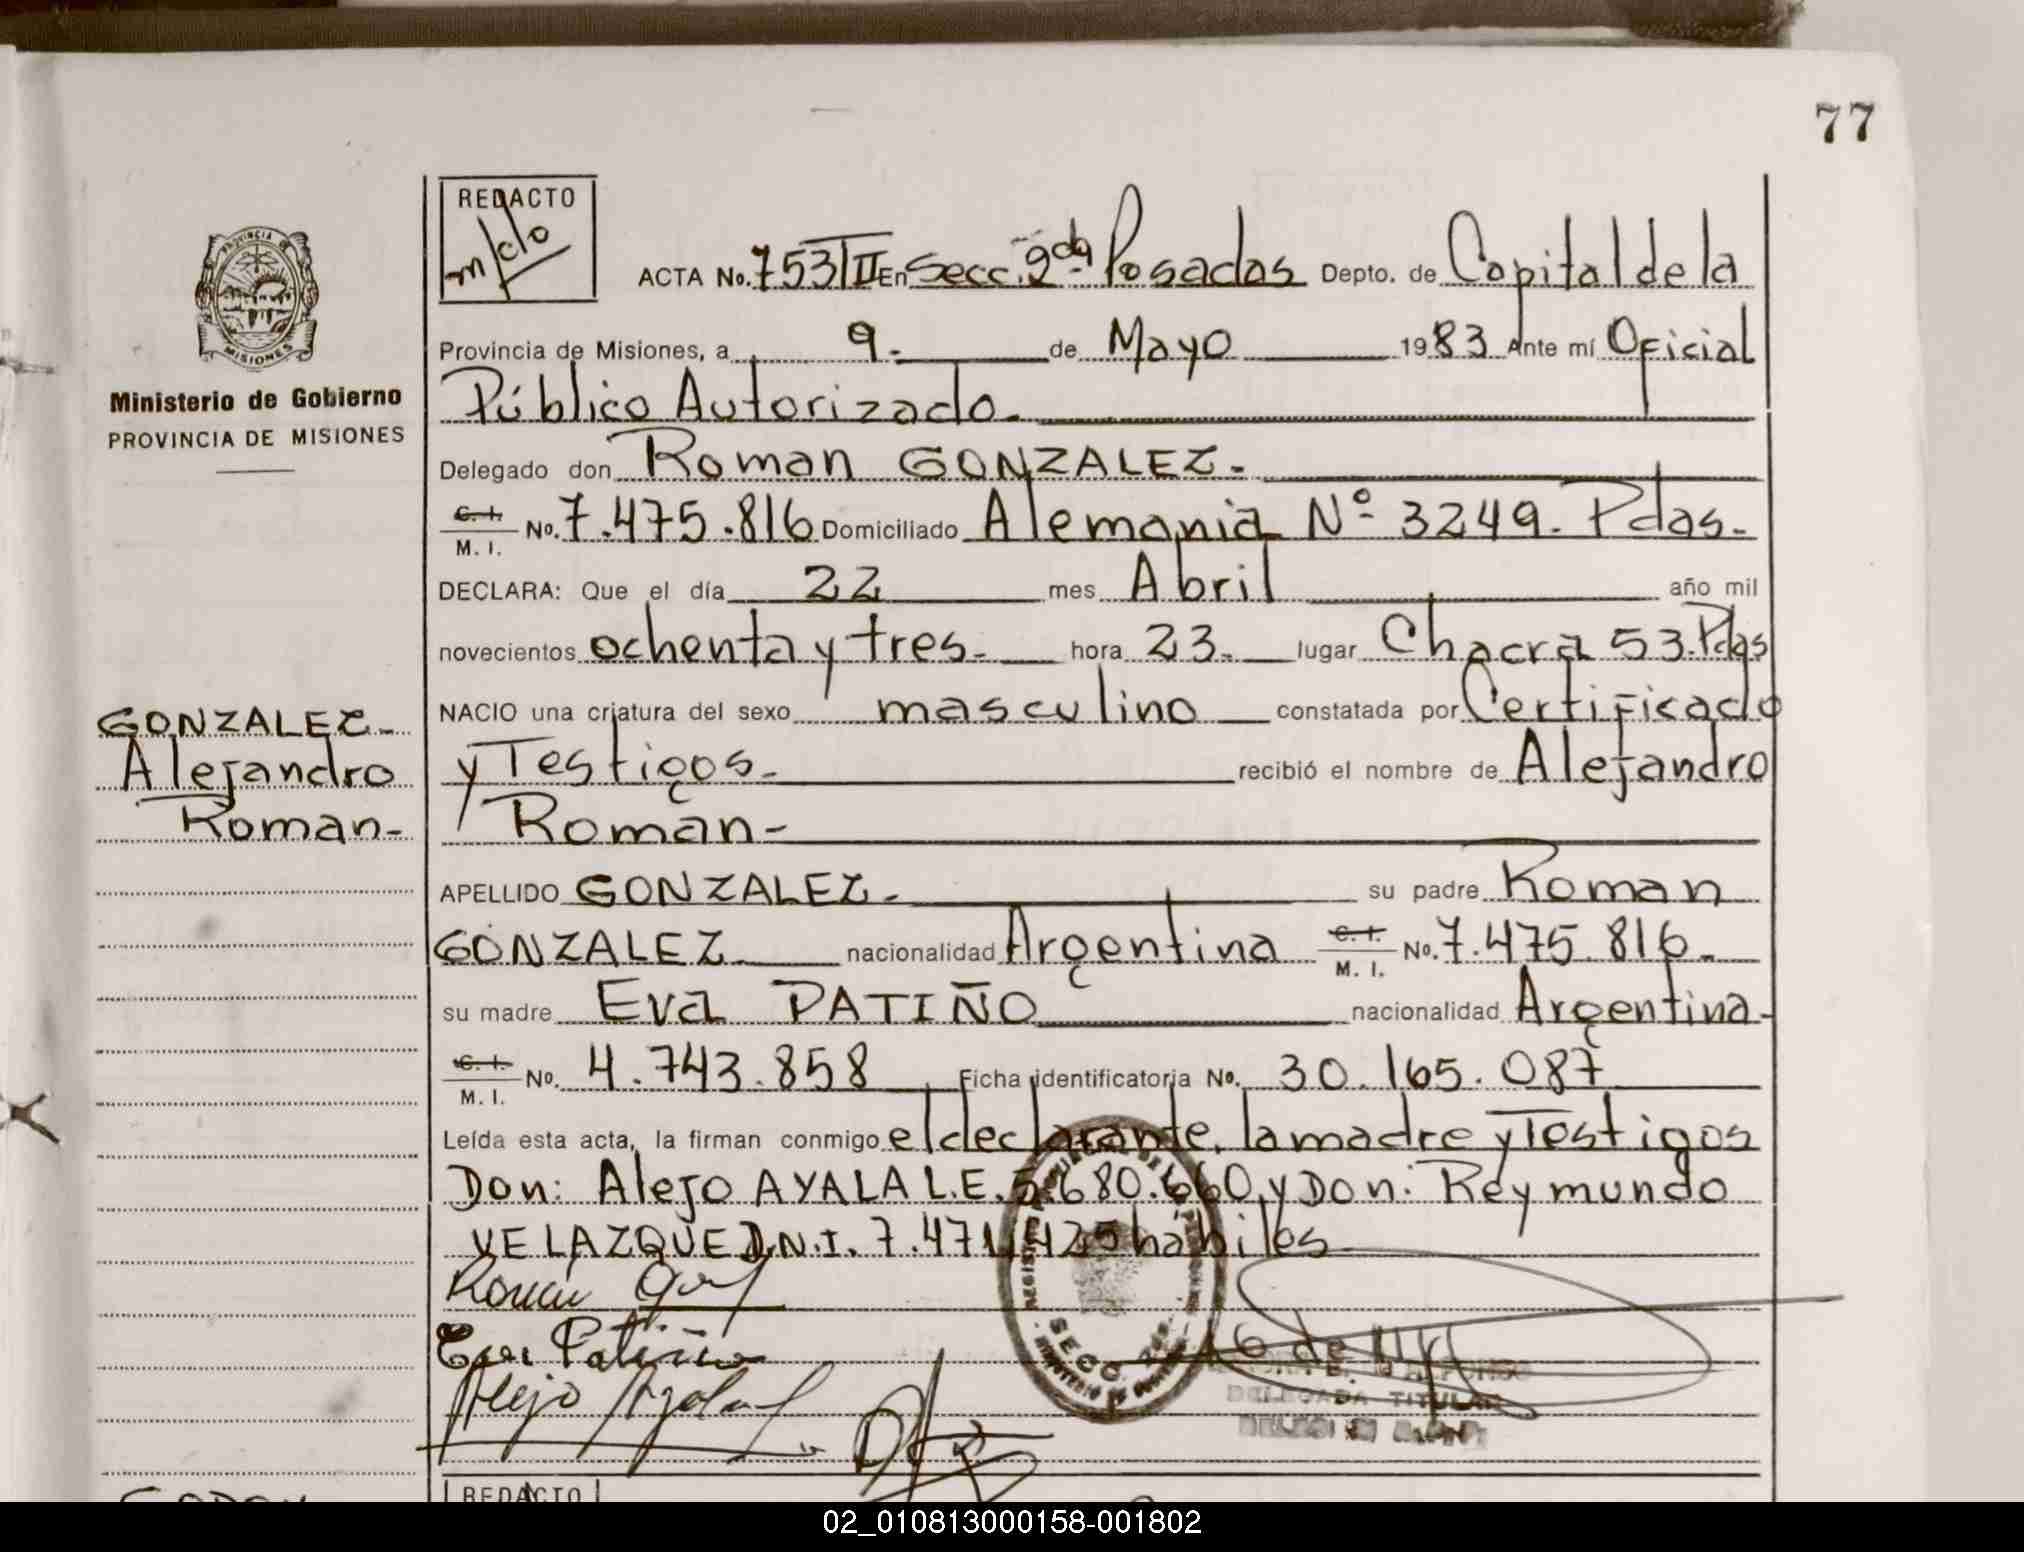 77
REDACTO
m/clo
ACTA No. 753/II En Secc. 2da. Posadas Depto. de Capital de la
Provincia de Misiones, a 9. de Mayo 1983 Ante mí Oficial
Público Autorizado.
Delegado don Roman GONZALEZ.
C. I. M. I. No. 7.475.816 Domiciliado Alemania Nº 3249. Pdas.
DECLARA: Que el día 22 mes Abril año mil
novecientos ochenta y tres. hora 23. lugar Chacra 53. Pdas
NACIO una criatura del sexo masculino constatada por Certificado
y Testigos. recibió el nombre de Alejandro
Roman-
APELLIDO GONZALEZ. su padre Roman
GONZALEZ nacionalidad Argentina C. I. M. I. No. 7.475.816.
su madre Eva PATIÑO nacionalidad Argentina-
C. I. M. I. No. 4.743.858 Ficha identificatoria No. 30.165.087
Leída esta acta, la firman conmigo el declarante, la madre y Testigos
Don: Alejo AYALA L.E. 5.680.660 y Don: Reymundo
VELAZQUE D.N.I. 7.471.425 hábiles
Eva Patiño
Alejo Ayala
DELEGADA TITULAR
SECC.
REDACTO
PROVINCIA DE MISIONES
Ministerio de Gobierno
PROVINCIA DE MISIONES
GONZALEZ-
Alejandro
Roman-
02_010813000158-001802